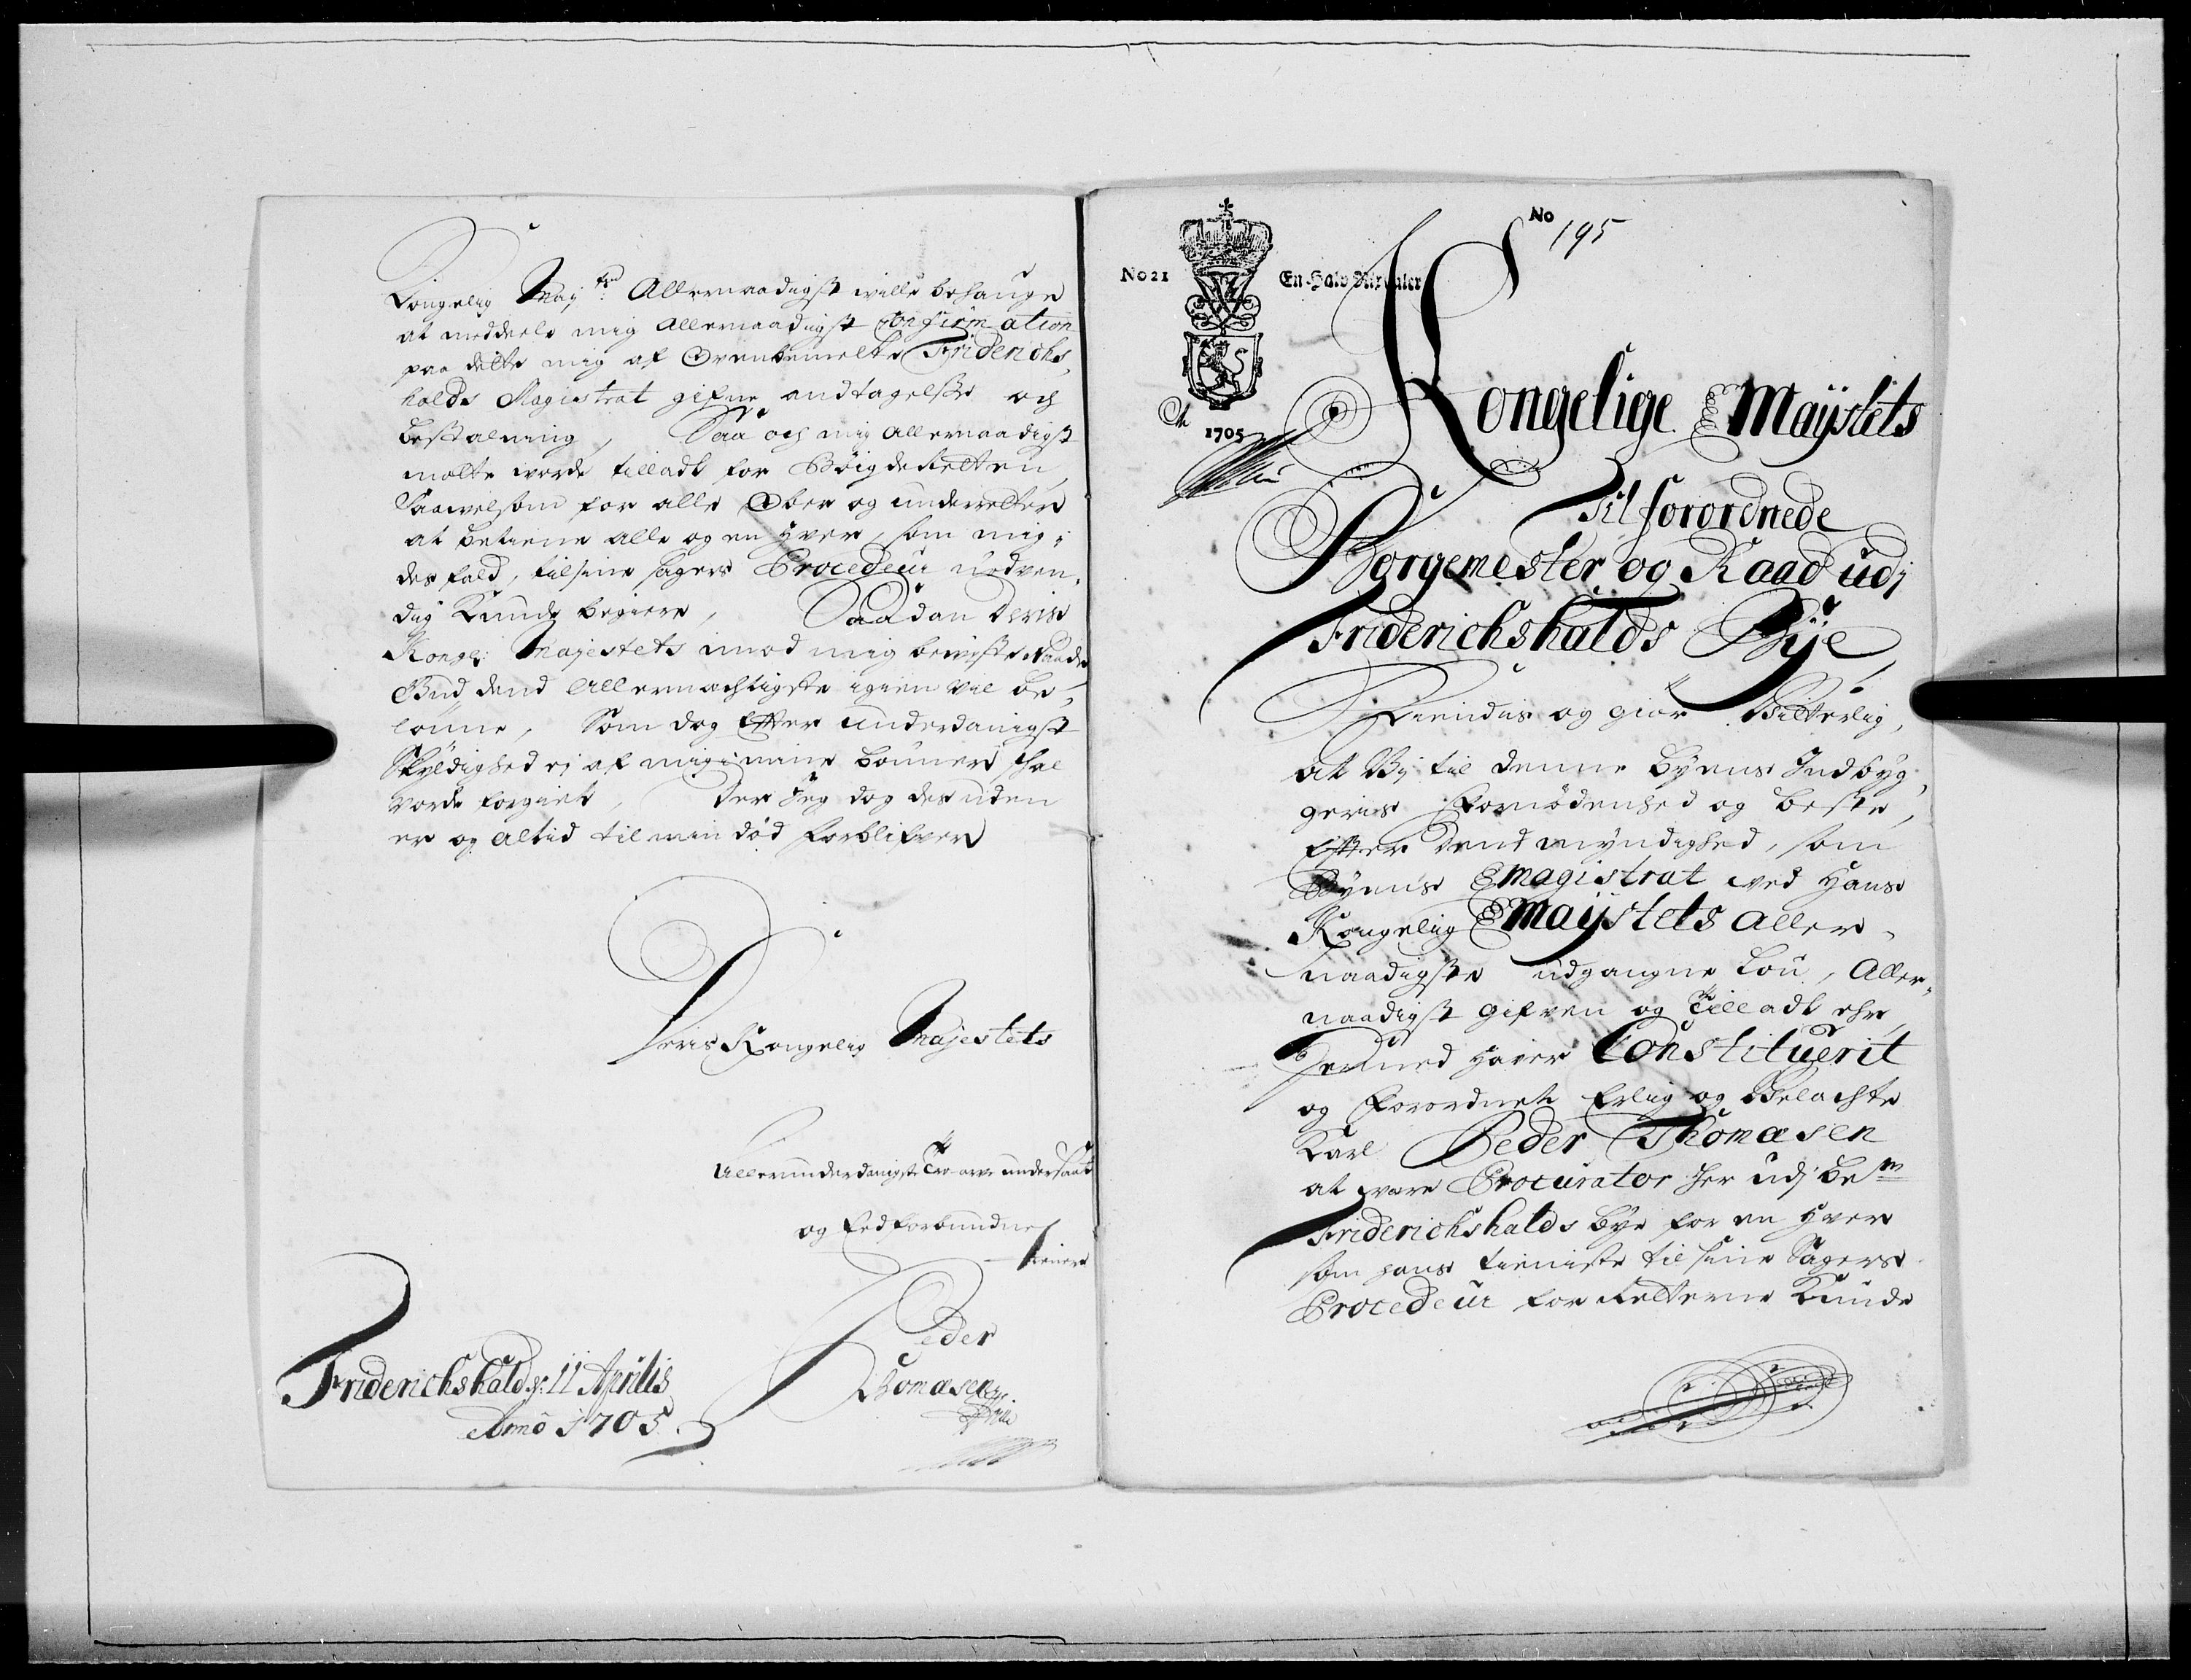 Kongelig Maytz: Allernaadigst wille behauge
at meddeele mig allernaadigst Confirmation
paa dette mig af Ovenbemelte Friderichs,
halds Magistrat gifne andtagelse och
bestalning, Saa och mig allernaadigst
motte worde tilladt for Böigderetten
Saavelsom for alle Ober og underretter
at betiene alle og en hver, som mig i
des fald, til sine sagers Procedeur nødven,
dig Kunde begiere, Saadan Deris
Kongl: Majestets imod mig beviste Naade
Gud dend Allermechtigste igien vil be,
lønne, Som dog efter underdanigst
Skyldighed ej af mig i mine bønner skal
vorde forgiet, Der Jeg dog des uden
er og altid til min død forblifver
Deris Kongelig Majestets
Allerunderdanigste Troe arve undersaat
og Eedforbundne
tienere
Peder
Thomasen
Friderichshald d: 11 Aprilis
Anno 1705
No 195
No 21
En Halv Rixdaler
1705
Kongelige Maystets
Til forordnede
Borgemester og Raad udj
Friderichshalds Bÿe
Kiendis og giør Vitterlig,
at Vj til denne byens Indbyg,
geris Fornødenhed og beste,
Efter dend myndighed, som
Byens Magistrat ved Hans
Kongelig Maystets aller,
naadigste udgangne Lou, Aller,
naadigst gifven og Tilladt ehr,
Hermed haver Constituerit
og Forordnet Erlig og Velachte
Karl Peder Thomasen
at være Procurator her udj bem
Friderichshalds bye for en hver
som hans tieniste til sine Sagers
Procedeur for Retterne Kunde